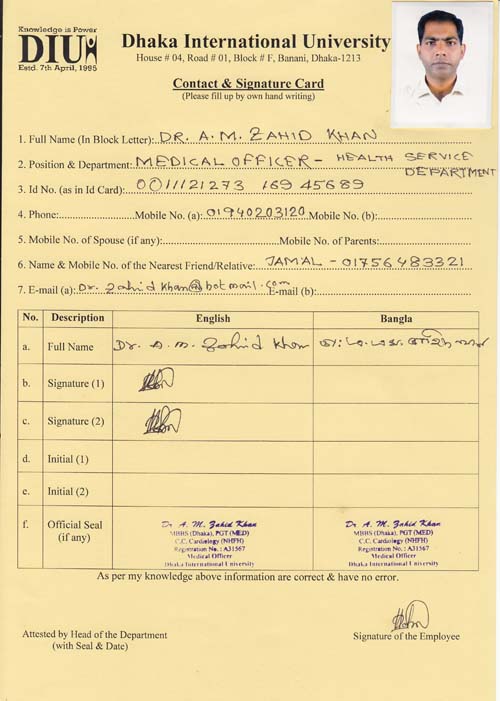 Knowledge is Power
DIU
Estd. 7th April, 1995
Dhaka International University
House # 04, Road # 01, Block # F, Banani, Dhaka-1213
Contact & Signature Card
(Please fill up by own hand writing)
1. Full Name (In Block Letter): DR. A. M. ZAHID KHAN
2. Position & Department: MEDICAL OFFICER - HEALTH SERVICE DEPARTMENT
3. Id No. (as in Id Card): 00111121273 169 45689
4. Phone: Mobile No. (a): 01940203120 Mobile No. (b):
5. Mobile No. of Spouse (if any): Mobile No. of Parents:
6. Name & Mobile No. of the Nearest Friend/Relative: JAMAL - 01756483321
7. E-mail (a): Dr. zahid khan@hotmail.com E-mail (b):
No. Description English Bangla
a. Full Name Dr. A. M. Zahid Khan
b. Signature (1)
c. Signature (2)
d. Initial (1)
e. Initial (2)
f. Official Seal (if any)
Dr A. M. Zahid Khan
MBBS (Dhaka), PGT (MED)
C.C. Cardiology (NHFH)
Registration No. : A31567
Medical Officer
Dhaka International University
Dr A. M. Zahid Khan
MBBS (Dhaka), PGT (MED)
C.C. Cardiology (NHFH)
Registration No. : A31567
Medical Officer
Dhaka International University
As per my knowledge above information are correct & have no error.
Attested by Head of the Department
(with Seal & Date)
Signature of the Employee